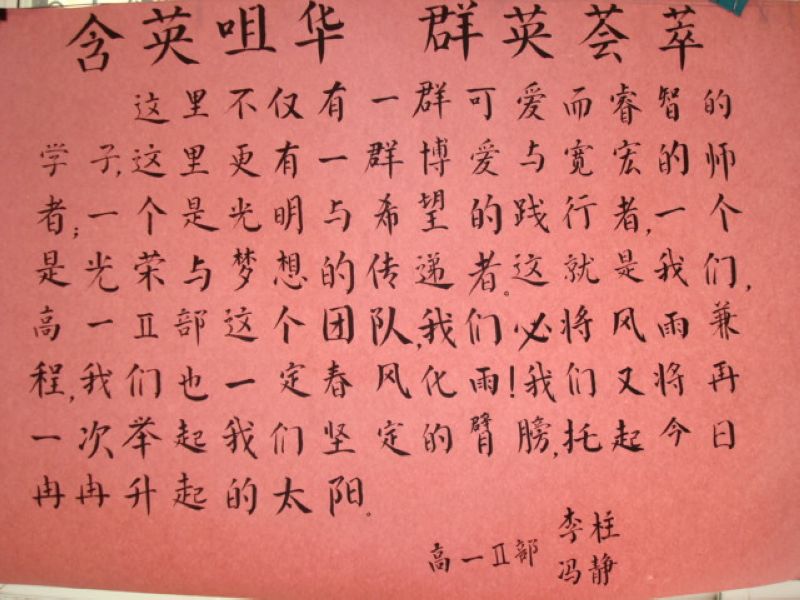 含英咀华 群英荟萃
这里不仅有一群可爱而睿智的
学子,这里更有一群博爱与宽宏的师
者;一个是光明与希望的践行者,一个
是光荣与梦想的传递者。这就是我们,
高一Ⅱ部这个团队,我们必将风雨兼
程,我们也一定春风化雨!我们又将再
一次举起我们坚定的臂膀,托起今日
冉冉升起的太阳。
高一Ⅱ部 李柱
冯静